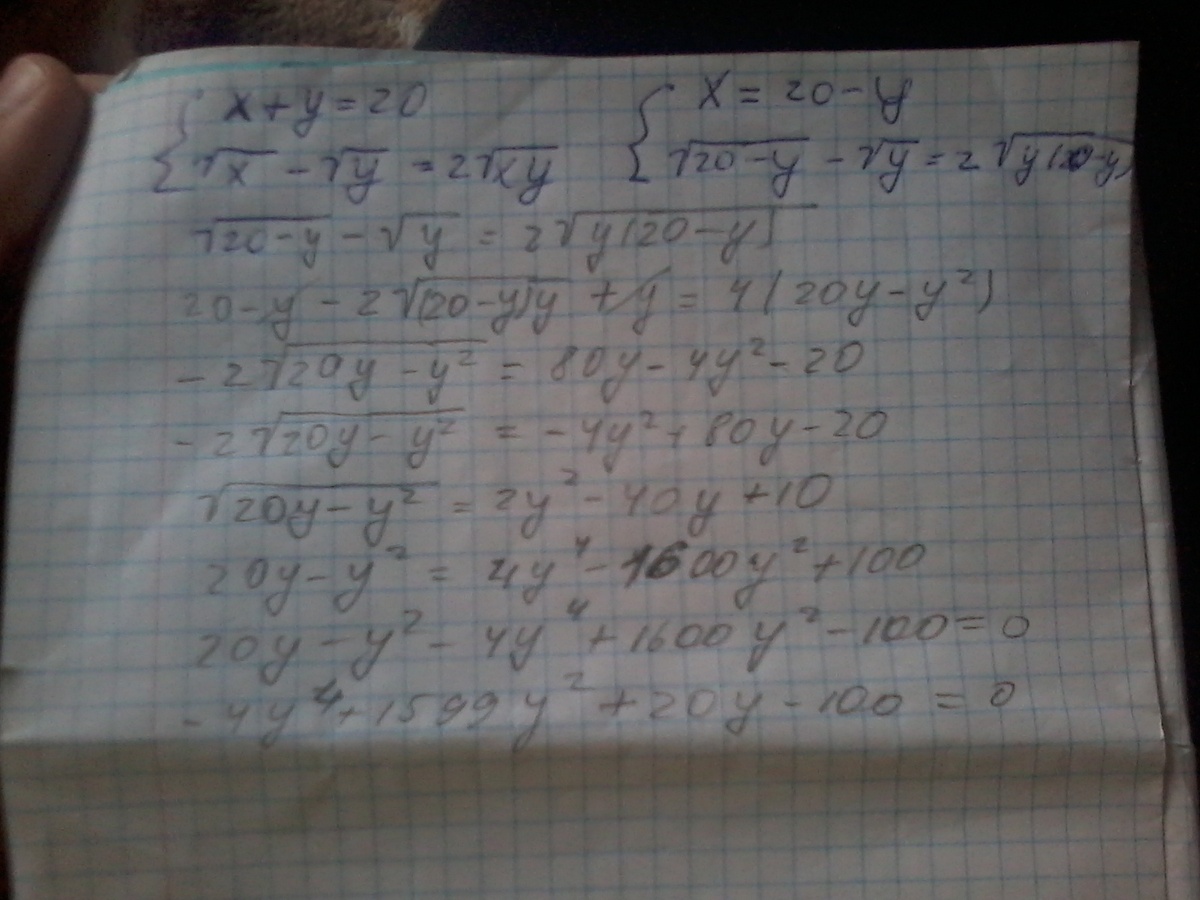 { x + y = 20    { x = 20 - y
{ √x - √y = 2√xy    { √20-y - √y = 2√y(20-y)
√20-y - √y = 2√y(20-y)
20 - y - 2√(20-y)y + y = 4(20y - y²)
- 2√20y - y² = 80y - 4y² - 20
- 2√20y - y² = - 4y² + 80y - 20
√20y - y² = 2y² - 40y + 10
20y - y² = 4y⁴ - 1600y² + 100
20y - y² - 4y⁴ + 1600y² - 100 = 0
- 4y⁴ + 1599y² + 20y - 100 = 0